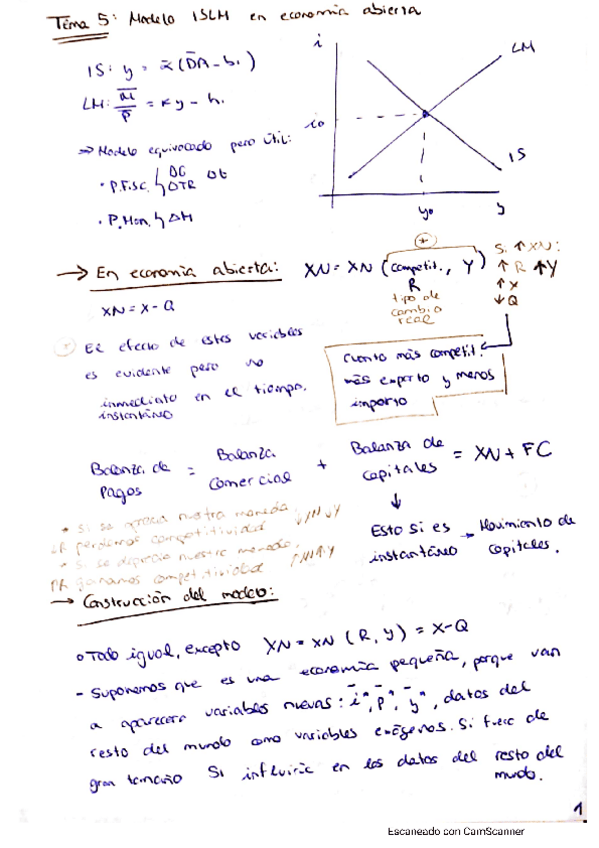 Tema 5: Modelo ISLM en economía abierta
IS: y = α(D̄Ā - b
LM: M̄/P̄ = Ky - h
i
LM
i₀
IS
y₀
y
⇒ Modelo equivocado pero útil:
• P. Fisc.
• P. Mon. ΔM
→ En economía abierta: XN = XN (competit., Y)
R
tipo de
cambio
real
Si ↑XN:
↑R ↑Y
↑X
↓Q
XN = X - Q
El efecto de estas variables
es evidente pero no
inmediato en el tiempo.
instantáneo
cuanto más competit.
más exporto y menos
importo
Balanza de Pagos = Balanza Comercial + Balanza de Capitales = XN + FC
• Si se aprecia nuestra moneda,
perdemos competitividad
• Si se deprecia nuestra moneda,
ganamos competitividad
Esto si es instantáneo → Movimiento de capitales.
→ Construcción del modelo:
o Todo igual, excepto XN = XN (R, y) = X - Q
- Suponemos que es una economía pequeña, porque van
a aparecer variables nuevas: ī*, p̄*, ȳ*, datos del
resto del mundo como variables exógenas. Si fuera de
gran tamaño si influiría en los datos del resto del
mundo.
1
Escaneado con CamScanner